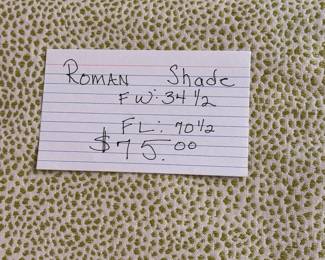 ROMAN Shade
FW: 34 1/2
FL: 70 1/2
$75.00